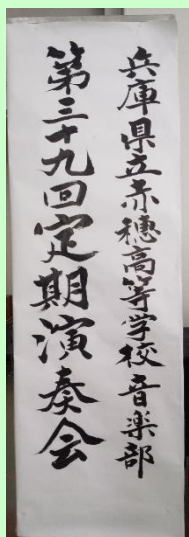 兵庫県立赤穂高等学校音楽部
第三十九回定期演奏会